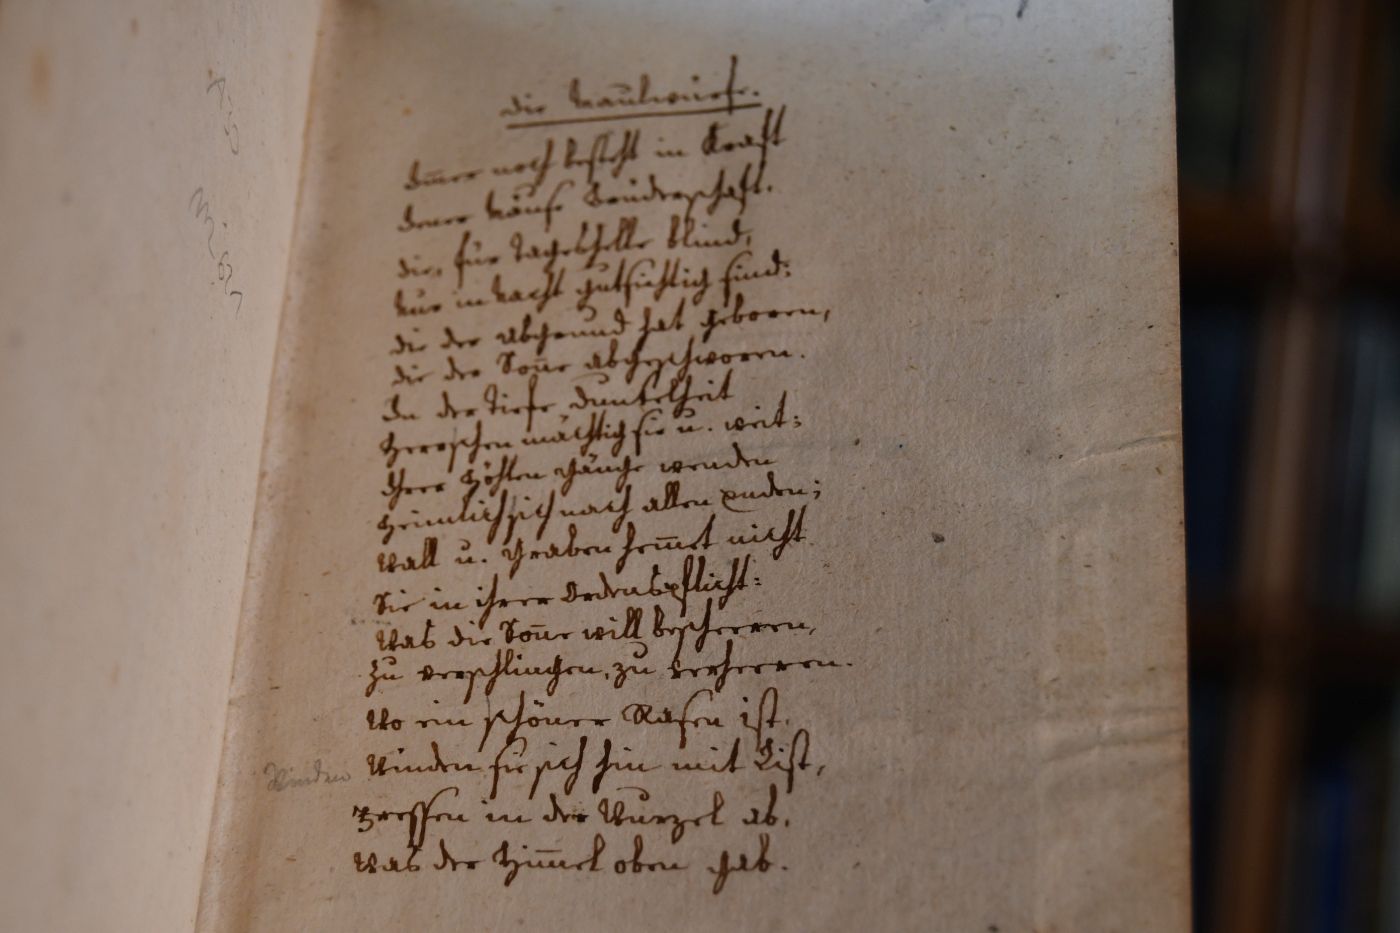 Die Maulwürfe.
Im̄er noch besteht in Kraft
Jener Mäuse Brüderschaft.
Die, für Tageshelle blind,
Nur in Nacht gutsichtig sind:
Die der Abgrund hat geboren,
Die der Son̄e abgeschworen.
In der Tiefe Dunkelheit
Herrschen mächtig sie u. weit:
Ihrer Höhlen Gänge wenden
Heimlich sich nach allen Enden;
Wall u. Graben hem̄et nicht
Sie in ihrer Ordenspflicht:
Was die Son̄e will bescheeren,
Zu verschlingen, zu verheeren.
Wo ein schöner Rasen ist,
Winden Winden sie sich hin mit List,
Fressen in der Wurzel ab,
Was der Him̄el oben gab.